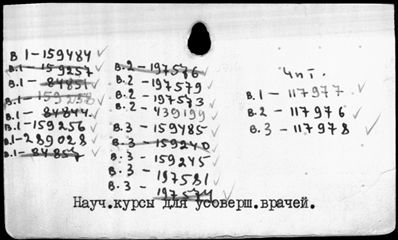 В 1-159484
В.1-159257
В.1- 84851
В.1-159258
В.1- 84844
В.1-159256
В.1-289028
В.1-84857
В.2-197576
В.2-197579
В.2-197573
В.2-439199
В.3-159485
В.3-159240
В.3-159245
В.3-197581
В.3-197574
Чит.
В.1-117977
В.2-117976
В.3-117978
Науч.курсы для усоверш.врачей.